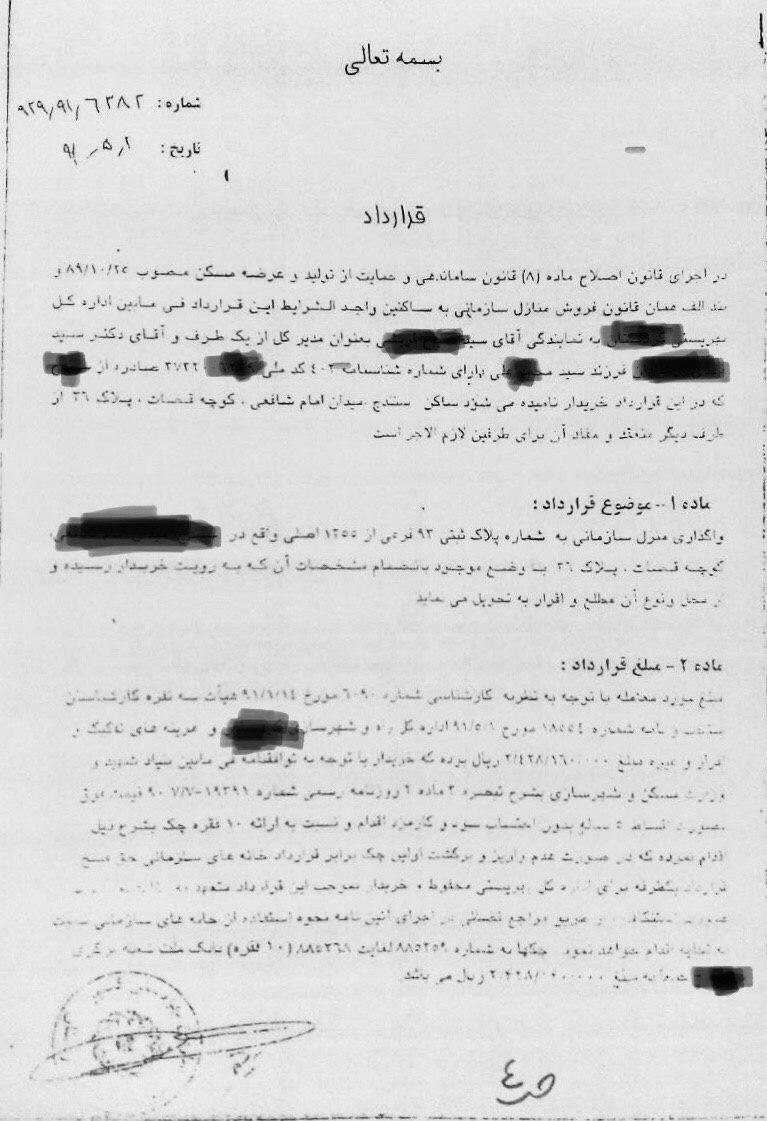 بسمه تعالی
شماره: ۹۲۹٫۹۱٫۶۲۸۲
تاریخ: ۹۱٫۵٫۲
قرارداد
در اجرای قانون اصلاح ماده (۸) قانون ساماندهی و حمایت از تولید و عرضه مسکن مصوب ۸۹/۱۰/۲۵ و
بند الف همان قانون فروش منازل سازمانی به ساکنین واجد الشرایط این قرارداد فی مابین اداره کل
بهزیستی به نمایندگی آقای سید بعنوان مدیر کل از یک طرف و آقای دکتر سید
فرزند سید دارای شماره شناسنامه ۴۰۲ کد ملی صادره از
که در این قرارداد خریدار نامیده می شود ساکن سنندج میدان امام شافعی ، کوچه قضات ، پلاک ۲۶ از
طرف دیگر منعقد و مفاد آن برای طرفین لازم الاجر است
ماده ۱ -- موضوع قرارداد :
واگذاری منزل سازمانی به شماره پلاک ثبتی ۹۳ فرعی از ۱۲۵۵ اصلی واقع در
کوچه قضات ، پلاک ۲۶ با وضع موجود بانضمام مشخصات آن که به رویت خریدار رسیده و
از محل وقوع آن مطلع و اقرار به تحویل می نماید
ماده ۲ - مبلغ قرارداد :
مبلغ مورد معامله با توجه به نظریه کارشناسی شماره ۶۰۹۰ مورخ ۹۱/۱/۱۴ هیأت سه نفره کارشناسان
منتخب و نامه شماره ۱۸۵۵۴ مورخ ۹۱/۵/۱ اداره کل راه و شهرسازی و هزینه های تفکیک و
افراز و غیره مبلغ ۲/۴۲۸/۱۶۰/۰۰۰ ریال بوده که خریدار با توجه به توافقنامه فی مابین بنیاد شهید و
وزارت مسکن و شهرسازی بشرح تبصره ۲ ماده ۲ روزنامه رسمی شماره ۱۹۳۹۱-۹۰/۷/۷ قیمت فوق
بصورت اقساط ۵ ساله بدون احتساب سود و کارمزد اقدام و نسبت به ارائه ۱۰ فقره چک بشرح ذیل
اقدام نموده که در صورت عدم واریز و برگشت اولین چک برابر قرارداد خانه های سازمانی حق فسخ
قرارداد یکطرفه برای اداره کل بهزیستی محفوظ و خریدار بموجب این قرارداد متعهد به
صورت استنکاف از طریق مراجع قضائی در اجرای آئین نامه نحوه استفاده از خانه های سازمانی نسبت
به تخلیه اقدام خواهد نمود . چکها به شماره ۸۸۵۲۵۹ لغایت ۸۸۵۲۶۸ (۱۰ فقره) بانک ملت شعبه مرکزی
جمعاً به مبلغ ریال می باشد.